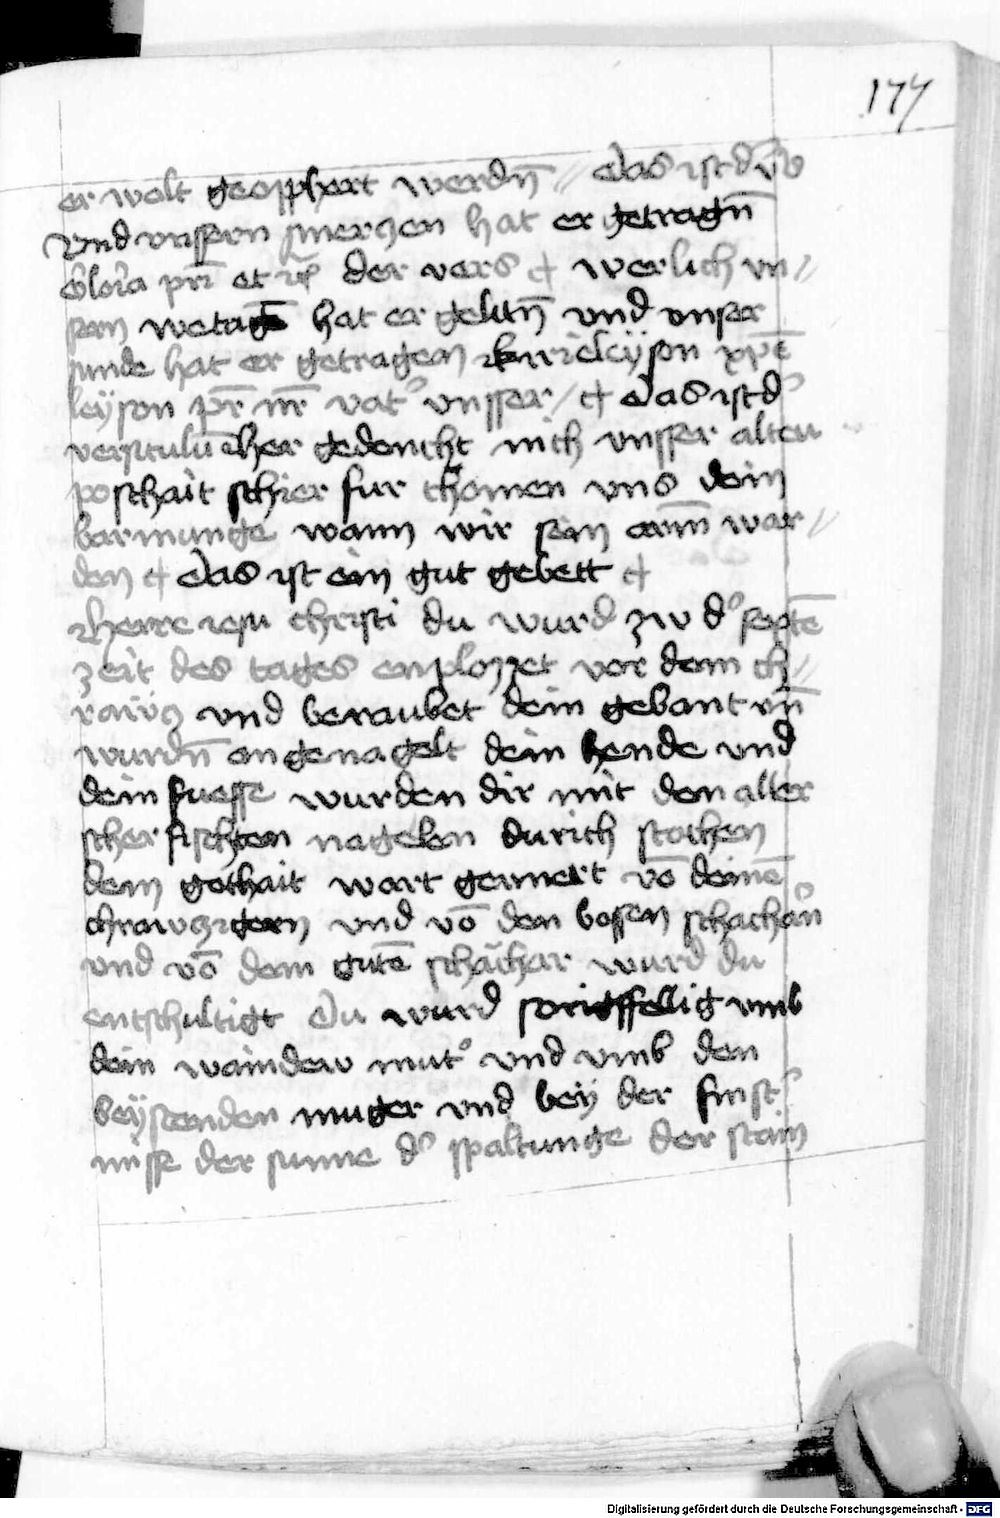 177
er wolt geopphert werdn̄ // Das ist d' v̄s
Vnd vnssern smerczen hat er getragn̄
Gloria pr̄i et der vers ¢ werlich vn//
sern wetagē hat er gelitn̄ vnd vnser
sunde hat er getragen kirieleÿson xp̄e
leÿson pr̄ nr̄ vat' vnsser / ¢ Das ist d'
versiculū Her gedencht nich vnsser alten
poschait schier fur chomen vns dein
barmunge wann wir sein arm̄ war//
den ¢ Das ist ein gut gebett ¢
Herre iesu christi du wurd zw d' septē
zeit des tages enplozzet vor dem ch//
rawcz vnd beraubet dein gebant vn̄
wurdn̄ an genagelt dein hende vnd
dein fuesse wurden dir mit den aller
scherfischten nagelen durich stochen
dein gothait wart geunert vō deinē
chrawczigern vnd vō den bossen schachān
vnd vō dem gutē schachar wurd du
entschultigt Du wurd sorigffellig vmb
dein waindew mut' vnd vmb den
beÿstenden muger vnd beÿ der finst'
nisse der sunne d' spaltunge der stain
Digitalisierung gefördert durch die Deutsche Forschungsgemeinschaft - DFG